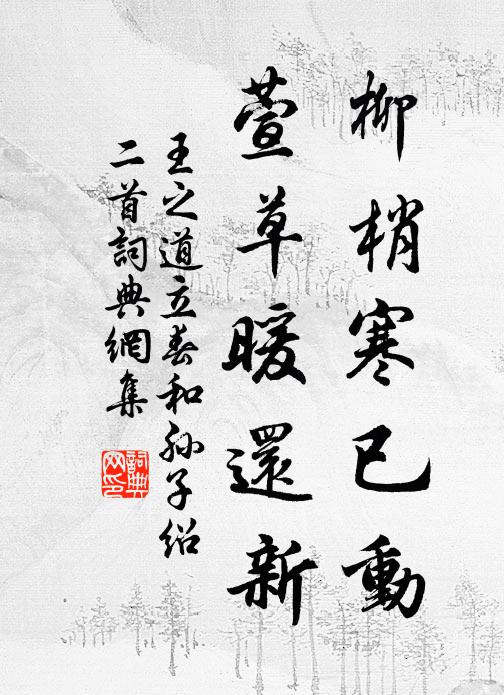 柳梢寒已動
萱草暖還新
王之道立春和孙子绍
二首詞典網集
詞典
网印